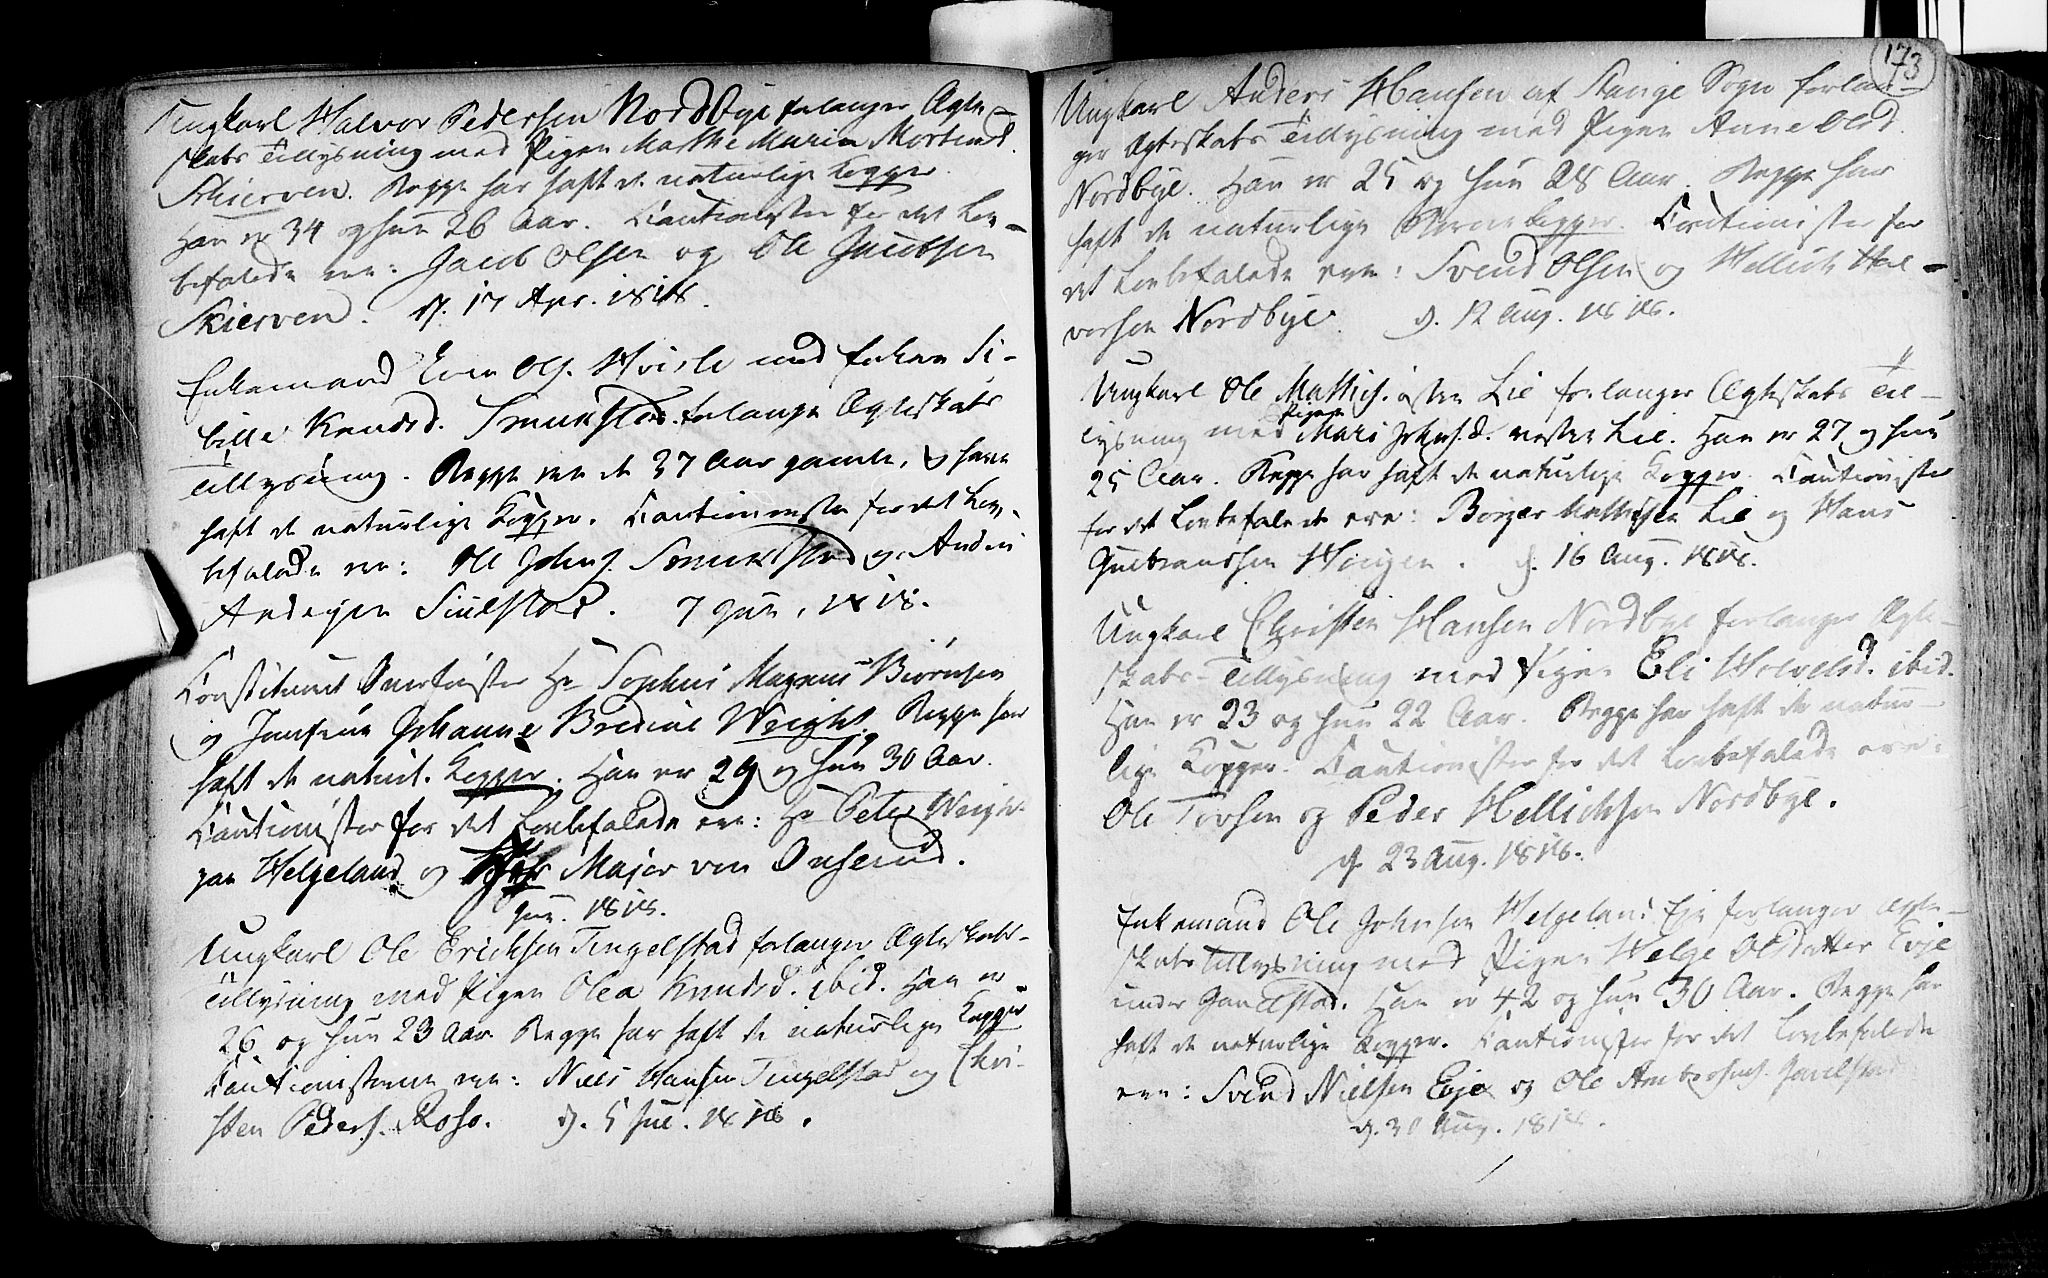 Ungkarl Halvor Pedersen Nordbye forlanger Ægte-
skabs Tillysning med Pigen Marthe Maria Mortensd.
Skierven. Begge har haft de naturlige Kopper.
Han er 34 og hun 26 Aar. Cautionister for det Lov-
befalede ere: Jacob Olsen og Ole Jacobsen
Skierven. d. 17 Apr. 1818.
Enkemand Iver Ols. Hvisle med Enken Si-
bille Knudsd. Smukstad forlange Ægteskabs
Tillysning. Begge ere de 37 Aar gamle, og have
haft de naturlige Kopper. Cautionister for det Lov-
befalede ere: Ole Johns. Smukstad og Anders
Andersen Sculstad. 7 Jun. 1818.
Constitueret Hr Sophus Magnus Biørnsen
og Jomfrue Johanne Bredine Weight. Begge har
haft de naturl. Kopper. Han er 29 og hun 30 Aar.
Cautionister for det Lovbefalede ere: Hr Peter Weight
paa Helgeland og Major von Onserud.
Jun. 1818.
Ungkarl Ole Ericksen Tingelstad forlanger Ægteskabs-
Tillysning med Pigen Olea Knudsd. ibid. Han er
26 og hun 23 Aar. Begge har haft de naturlige Kopper
Cautionisterne ere: Niels Hansen Tingelstad og Chri-
sten Peders. Roso. d. 5 Jul. 1818.
173
Ungkarl Anders Hansen af Stange Sogn forlan-
ger Ægteskabs Tillysning med Pigen Anne Olsd.
Nordbye. Han er 25 og hun 28 Aar. Begge har
haft de naturlige Børnekopper. Cautionister for
det Lovbefalede ere: Svend Olsen og Hellich Hal-
vorsen Nordbye. d. 12 Aug. 1818.
Ungkarl Ole Mathis. østre Lie forlanger Ægteskabs Til-
lysning med Pigen Mari Johnsd. vestre Lie. Han er 27 og hun
25 Aar. Begge har haft de naturlige Kopper. Cautionister
for det Lovbefalede ere: Børger Mathisen Lie og Hans
Gulbrandsen Hvigen. d. 16 Aug. 1818.
Ungkarl Christen Hansen Nordbye forlanger Ægte-
skabs-Tillysning med Pigen Eli Holvelsd. ibid.
Han er 23 og hun 22 Aar. Begge har haft de natur-
lige Kopper. Cautionister for det Lovbefalede ere:
Ole Torsen og Peder Hellichsen Nordbye.
d. 23 Aug. 1818.
Enkemand Ole Johnsen Helgeland Eje forlanger Ægte-
skabs Tillysning med Pigen Helge Olsdatter Evje
under Gavelstad. Han er 42 og hun 30 Aar. Begge har
haft de naturlige Kopper. Cautionister for det Lovbefalede
ere: Svend Nielsen Evje og Ole Ambrosius. Gavelstad
d. 30 Aug. 1818.